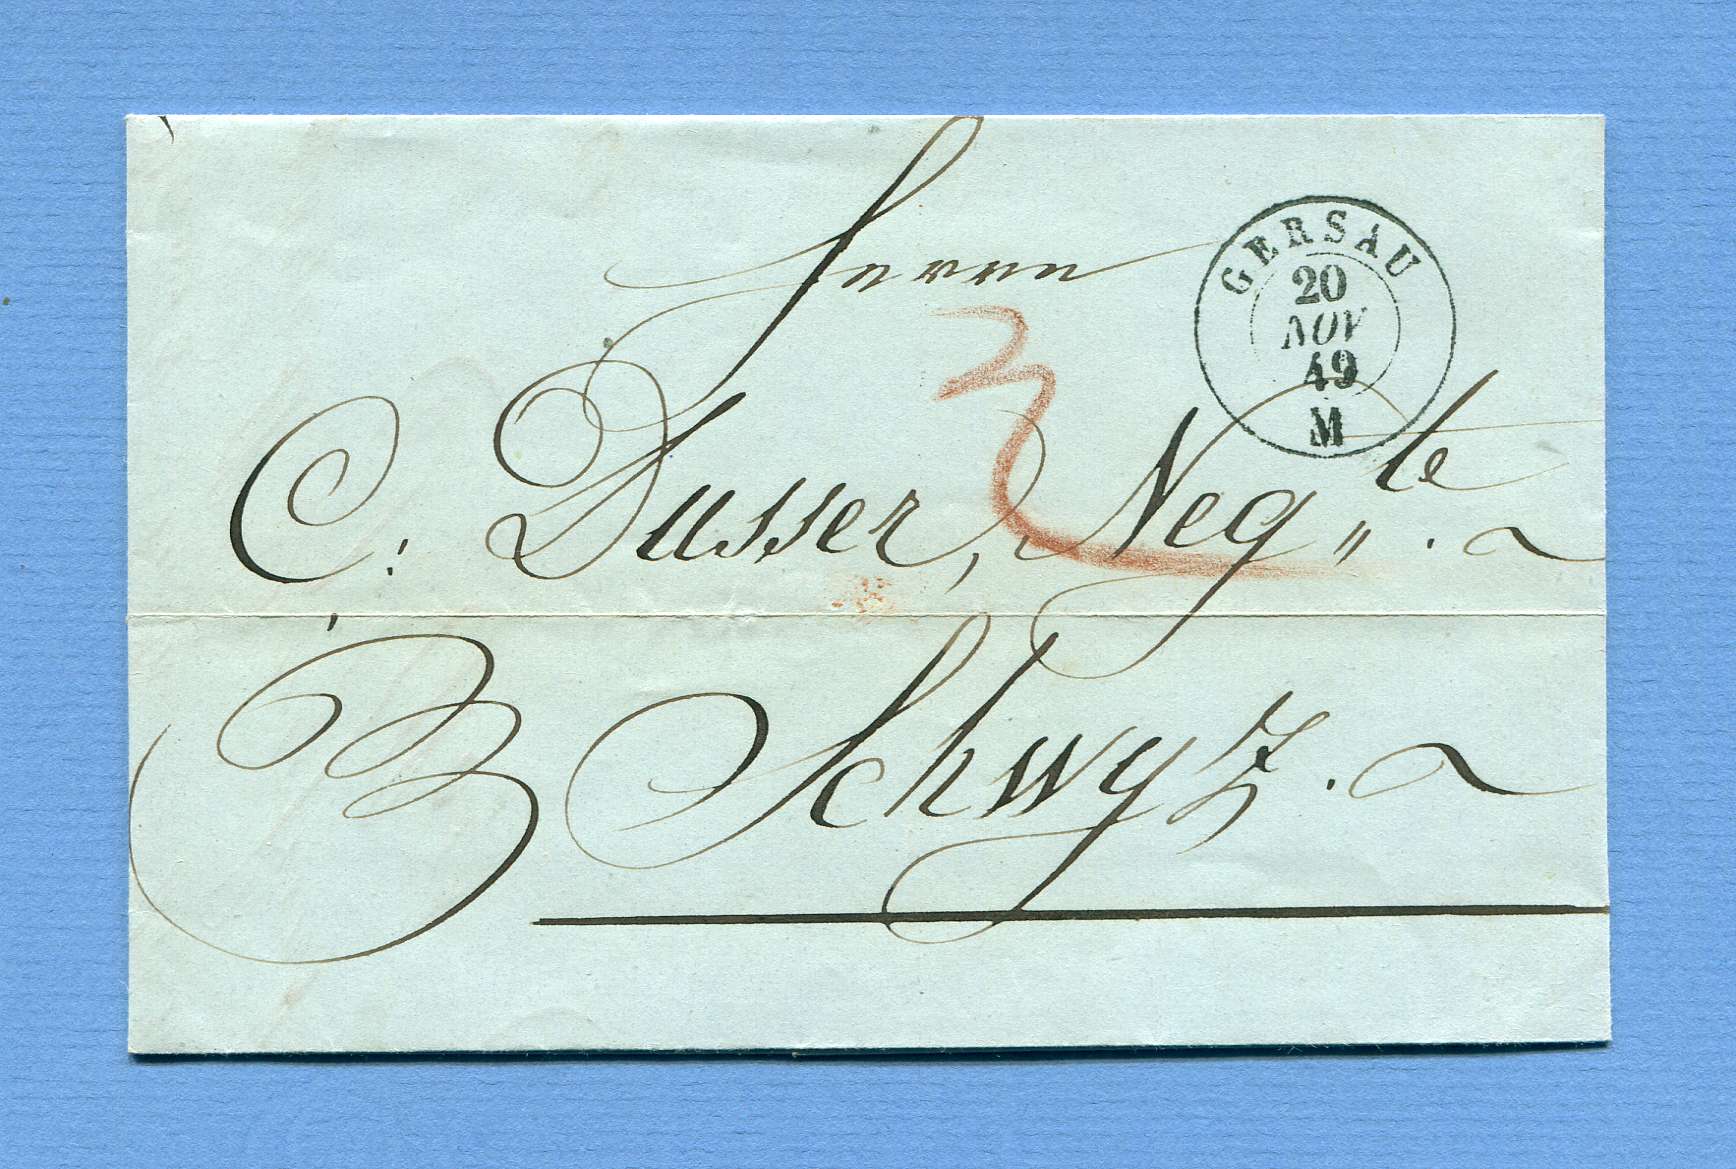 Herrn
GERSAU
20
NOV
49
M
3
C. Dusser, Neg„te.
Schwyz.